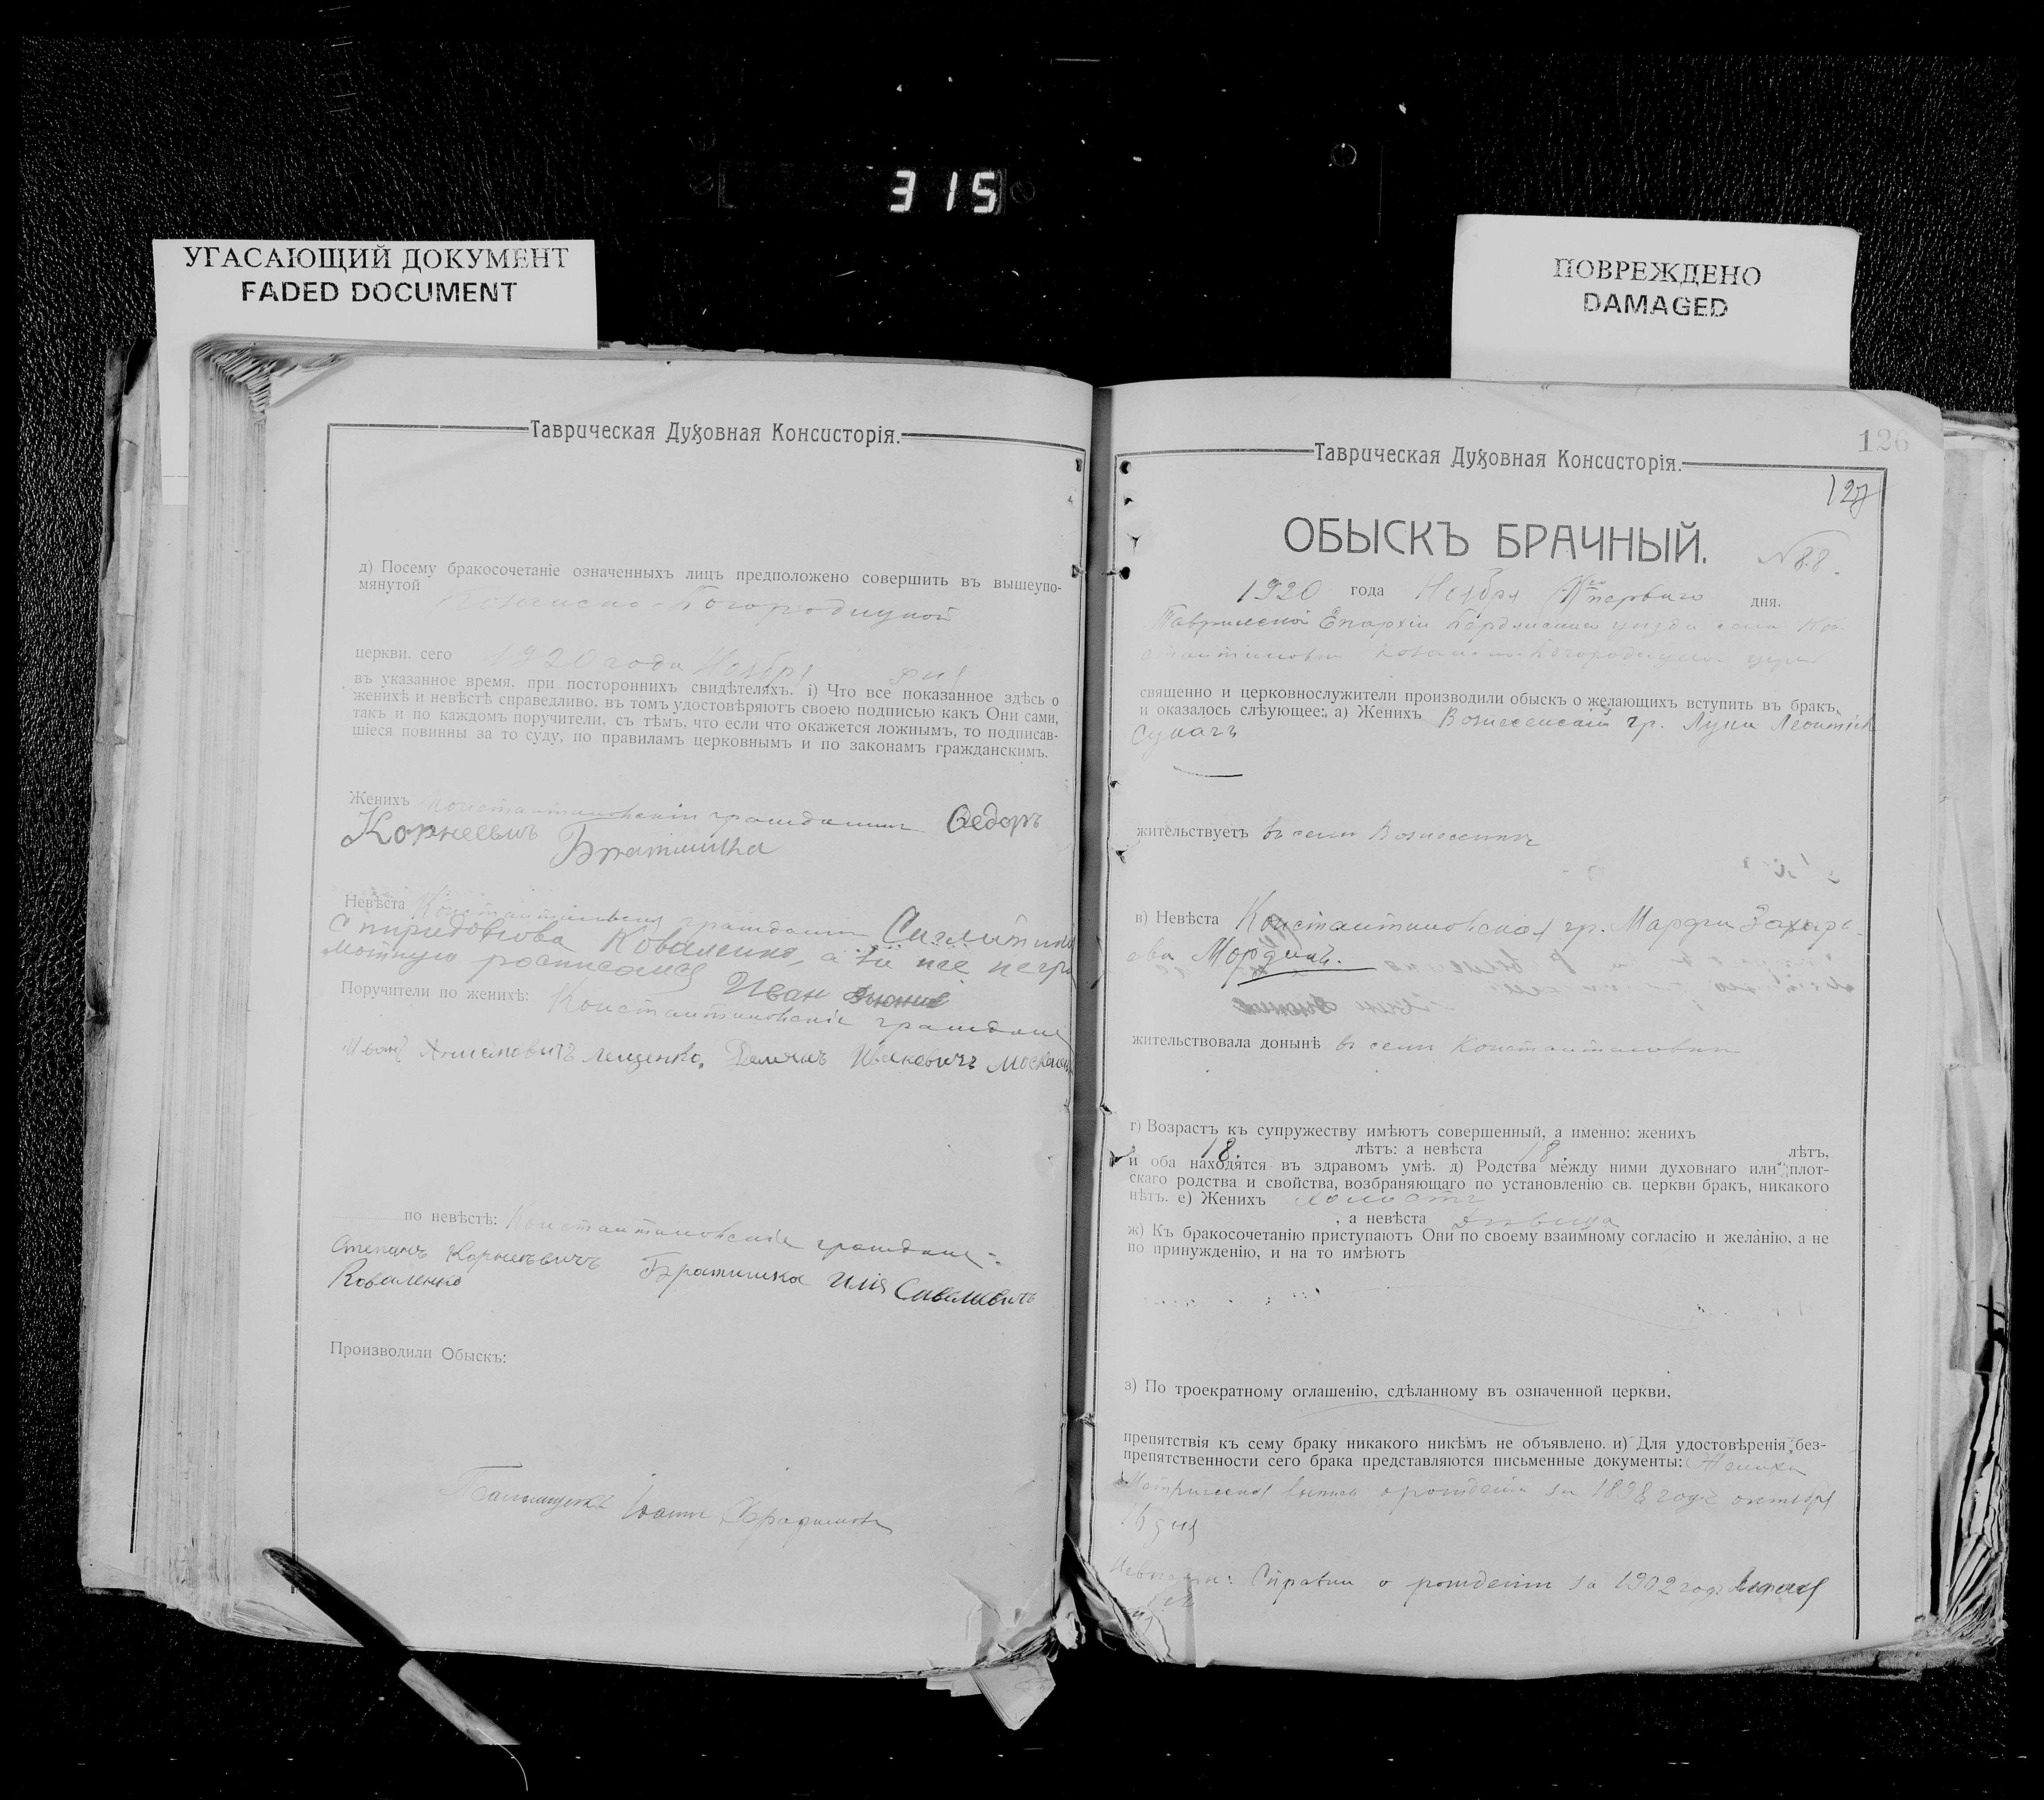 315
УГАСАЮЩИЙ ДОКУМЕНТ
FADED DOCUMENT
ПОВРЕЖДЕНО
DAMAGED
Таврическая Духовная Консисторія.
д) Посему бракосочетаніе означенныхъ лицъ предположено совершить въ вышеупо-
мянутой
Богородицкой
церкви. сего 1920 года Ноября дня
въ указанное время, при постороннихъ свидѣтеляхъ. і) Что все показанное здѣсь о
женихѣ и невѣстѣ справедливо, въ томъ удостовѣряютъ своею подписью какъ Они сами,
такъ и по каждомъ поручители, съ тѣмъ, что если что окажется ложнымъ, то подписав-
шіеся повинны за то суду, по правиламъ церковнымъ и по законамъ гражданскимъ.
Женихъ Константиновскій гражданинъ Федоръ
Корнеевичъ Братишка
Невѣста Константиновская
Спиридонова Коваленко, а за нее негра
мотную росписался Иван
Поручители по женихѣ: Константиновскіе граждане
Иванъ Лещенко. Иванович
по невѣстѣ: Константиновскіе граждане:
Степанъ Корнеевичъ Братишка Илія Савельевичъ
Коваленко
Производили Обыскъ:
Іоаннъ
126
Таврическая Духовная Консисторія.
127
ОБЫСКЪ БРАЧНЫЙ.
№ 88.
1920 года Ноября 1 первого дня.
Таврической Епархіи Бердянскаго уѣзда села Кон
стантиновки
священно и церковнослужители производили обыскъ о желающихъ вступить въ бракъ,
и оказалось слѣующее: а) Женихъ Вознесенскій гр. Лука Леонтіев
Сукачъ
жительствуетъ въ селѣ Вознесенкѣ
в) Невѣста Константиновская гр. Марфа Захарь-
ева
жительствовала донынѣ въ селѣ Константиновкѣ
г) Возрастъ къ супружеству имѣютъ совершенный, а именно: женихъ
18. лѣтъ: а невѣста 18 лѣтъ,
и оба находятся въ здравомъ умѣ. д) Родства между ними духовнаго или плот-
скаго родства и свойства, возбраняющаго по установленію св. церкви бракъ, никакого
нѣтъ. е) Женихъ холостъ
, а невѣста дѣвица
ж) Къ бракосочетанію приступаютъ Они по своему взаимному согласію и желанію, а не
по принужденію, и на то имѣютъ
з) По троекратному оглашенію, сдѣланному въ означенной церкви,
препятствія къ сему браку никакого никѣмъ не объявлено. и) Для удостовѣренія без-
препятственности сего брака представляются письменные документы: Жениха
Метрическая выпись о рожденіи за 1898 годъ октября
16 дня
Невѣсты: Справка о рожденіи за 1902 годъ